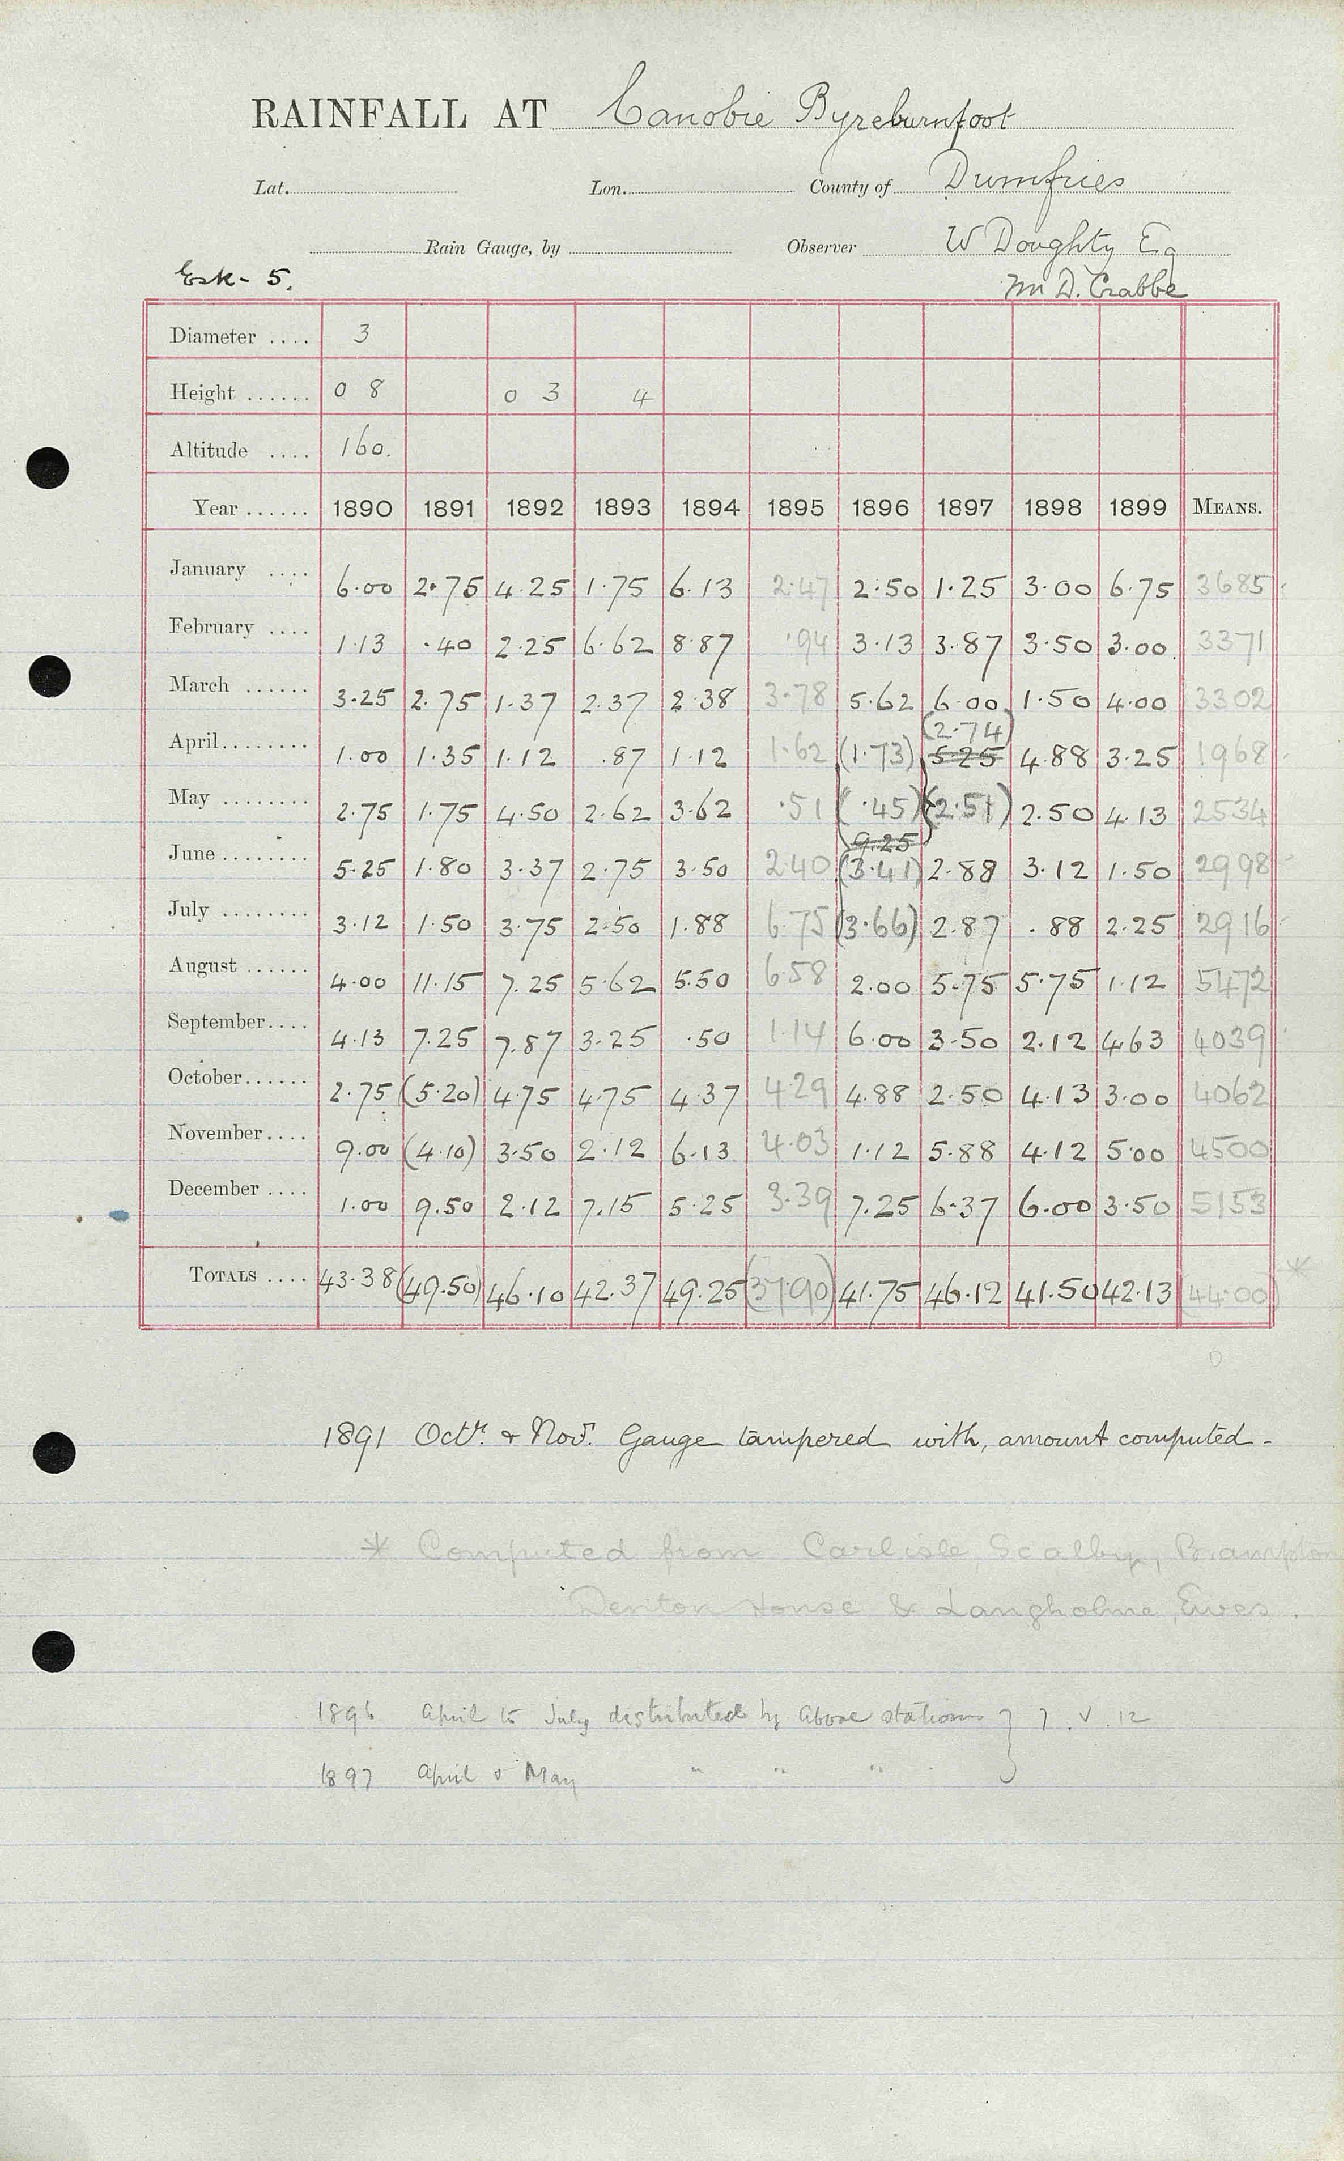 RAINFALL AT Canobie Byreburnfoot
Lat. Lon. County of Dumfries
Rain Gauge, by Observer W Doughty Eq
Esk - 5. Mr D. Crabbe
Diameter .... 3
Height ...... 0 8 0 3 4
Altitude .... 160.
Year ...... 1890 1891 1892 1893 1894 1895 1896 1897 1898 1899 MEANS.
January .... 6.00 2.75 4.25 1.75 6.13 2.47 2.50 1.25 3.00 6.75 3685
February .... 1.13 .40 2.25 6.62 8.87 .94 3.13 3.87 3.50 3.00 3371
March ...... 3.25 2.75 1.37 2.37 2.38 3.78 5.62 6.00 1.50 4.00 3302
(2.74)
April........ 1.00 1.35 1.12 .87 1.12 1.62 (1.73) 5.25 4.88 3.25 1968
May ........ 2.75 1.75 4.50 2.62 3.62 .51 (.45) (2.51) 2.50 4.13 2534
9.25
June........ 5.25 1.80 3.37 2.75 3.50 2.40 (3.41) 2.88 3.12 1.50 2998
July ........ 3.12 1.50 3.75 2.50 1.88 6.75 (3.66) 2.87 .88 2.25 2916
August ...... 4.00 11.15 7.25 5.62 5.50 6.58 2.00 5.75 5.75 1.12 5472
September.... 4.13 7.25 7.87 3.25 .50 1.14 6.00 3.50 2.12 4.63 4039
October...... 2.75 (5.20) 4.75 4.75 4.37 4.29 4.88 2.50 4.13 3.00 4062
November.... 9.00 (4.10) 3.50 2.12 6.13 4.03 1.12 5.88 4.12 5.00 4500
December .... 1.00 9.50 2.12 7.15 5.25 3.39 7.25 6.37 6.00 3.50 5153
TOTALS .... 43.38 (49.50) 46.10 42.37 49.25 (37.90) 41.75 46.12 41.50 42.13 (44.00) *
1891 Octr. & Novr. Gauge tampered with, amount computed -
* Computed from Carlisle, Scalby, Brampton
Denton House & Langholme, Ewes.
1896 April to July distributed by above stations } 7. V. 12
1897 April & May " " "